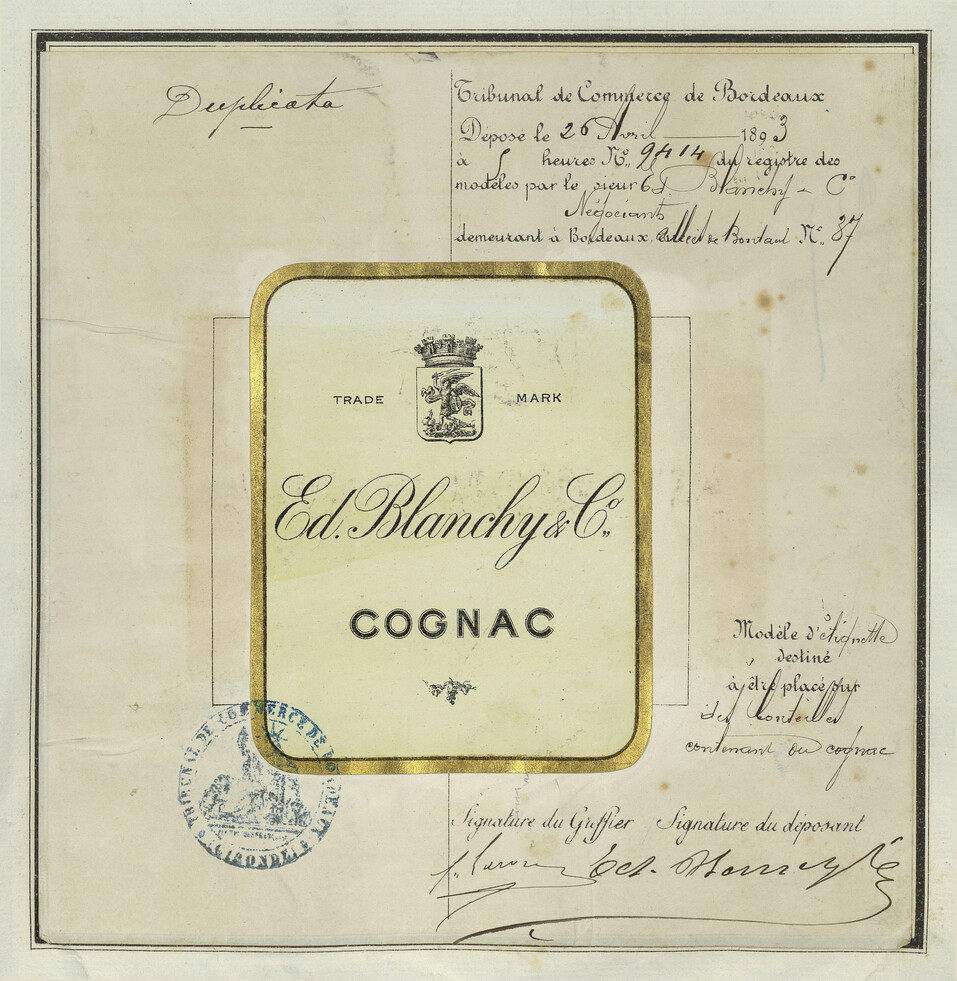 Duplicata
Tribunal de Commerce de Bordeaux
Déposé le 26 Avril 1893
à heures N° 9414 du régistre des
modèles par le sieur Ed. Blanchy & C°
Négociants
demeurant à Bordeaux, de Bordeaux N° 37
TRADE MARK
Ed. Blanchy & C°
COGNAC
Modèle d'étiquette
destiné
à être placé sur
des bouteilles
contenant du cognac
TRIBUNAL DE COMMERCE DE BORDEAUX
GIRONDE
Signature du Greffier Signature du déposant
Ed. Blanchy & C°